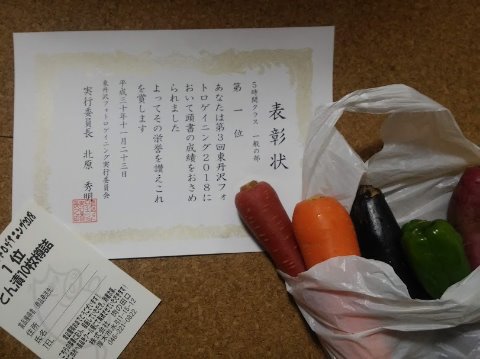 表彰状
5時間クラス 一般の部
第一位
あなたは第3回東丹沢フォ
トロゲイニング2018に
おいて頭書の成績をおさめ
られました
よってその栄誉を讃えこれ
を賞します
平成三十年十一月二十三日
東丹沢フォトロゲイニング実行委員会
実行委員長 北原 秀明
1位
とん漬10枚樽詰
住所
氏名
TEL